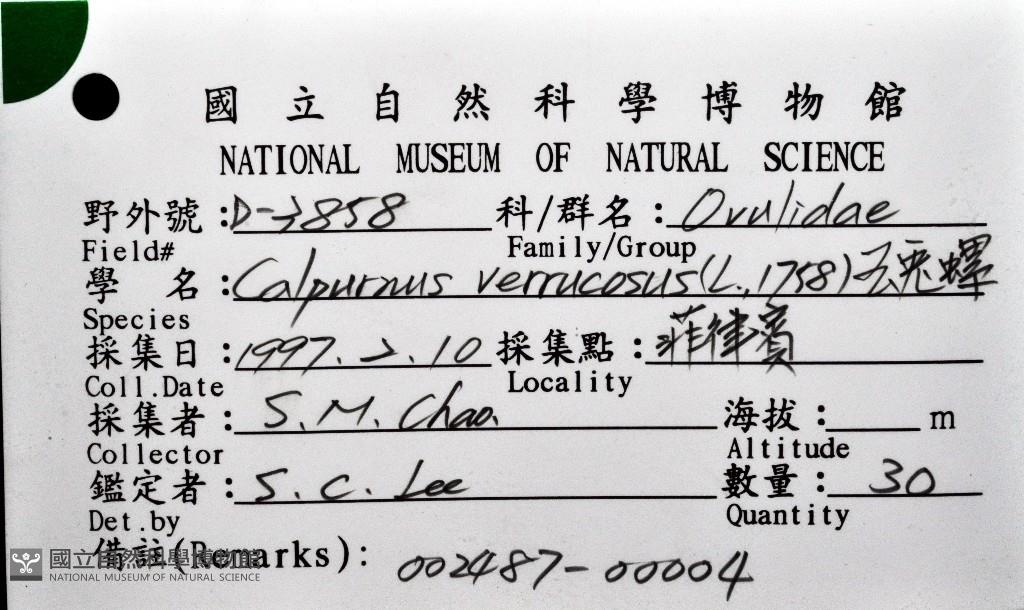 國立自然科學博物館
NATIONAL MUSEUM OF NATURAL SCIENCE
野外號:D-3858 科/群名:Ovulidae
Field# Family/Group
學 名:Calpurnus verrucosus (L., 1758) 玉兎螺
Species
採集日:1997. 2. 10 採集點:菲律賓
Coll.Date Locality
採集者:S. M. Chao. 海拔: m
Collector Altitude
鑑定者:S. C. Lee 數量:30
Det.by Quantity
備註(Remarks): 002487-00004
國立自然科學博物館
NATIONAL MUSEUM OF NATURAL SCIENCE